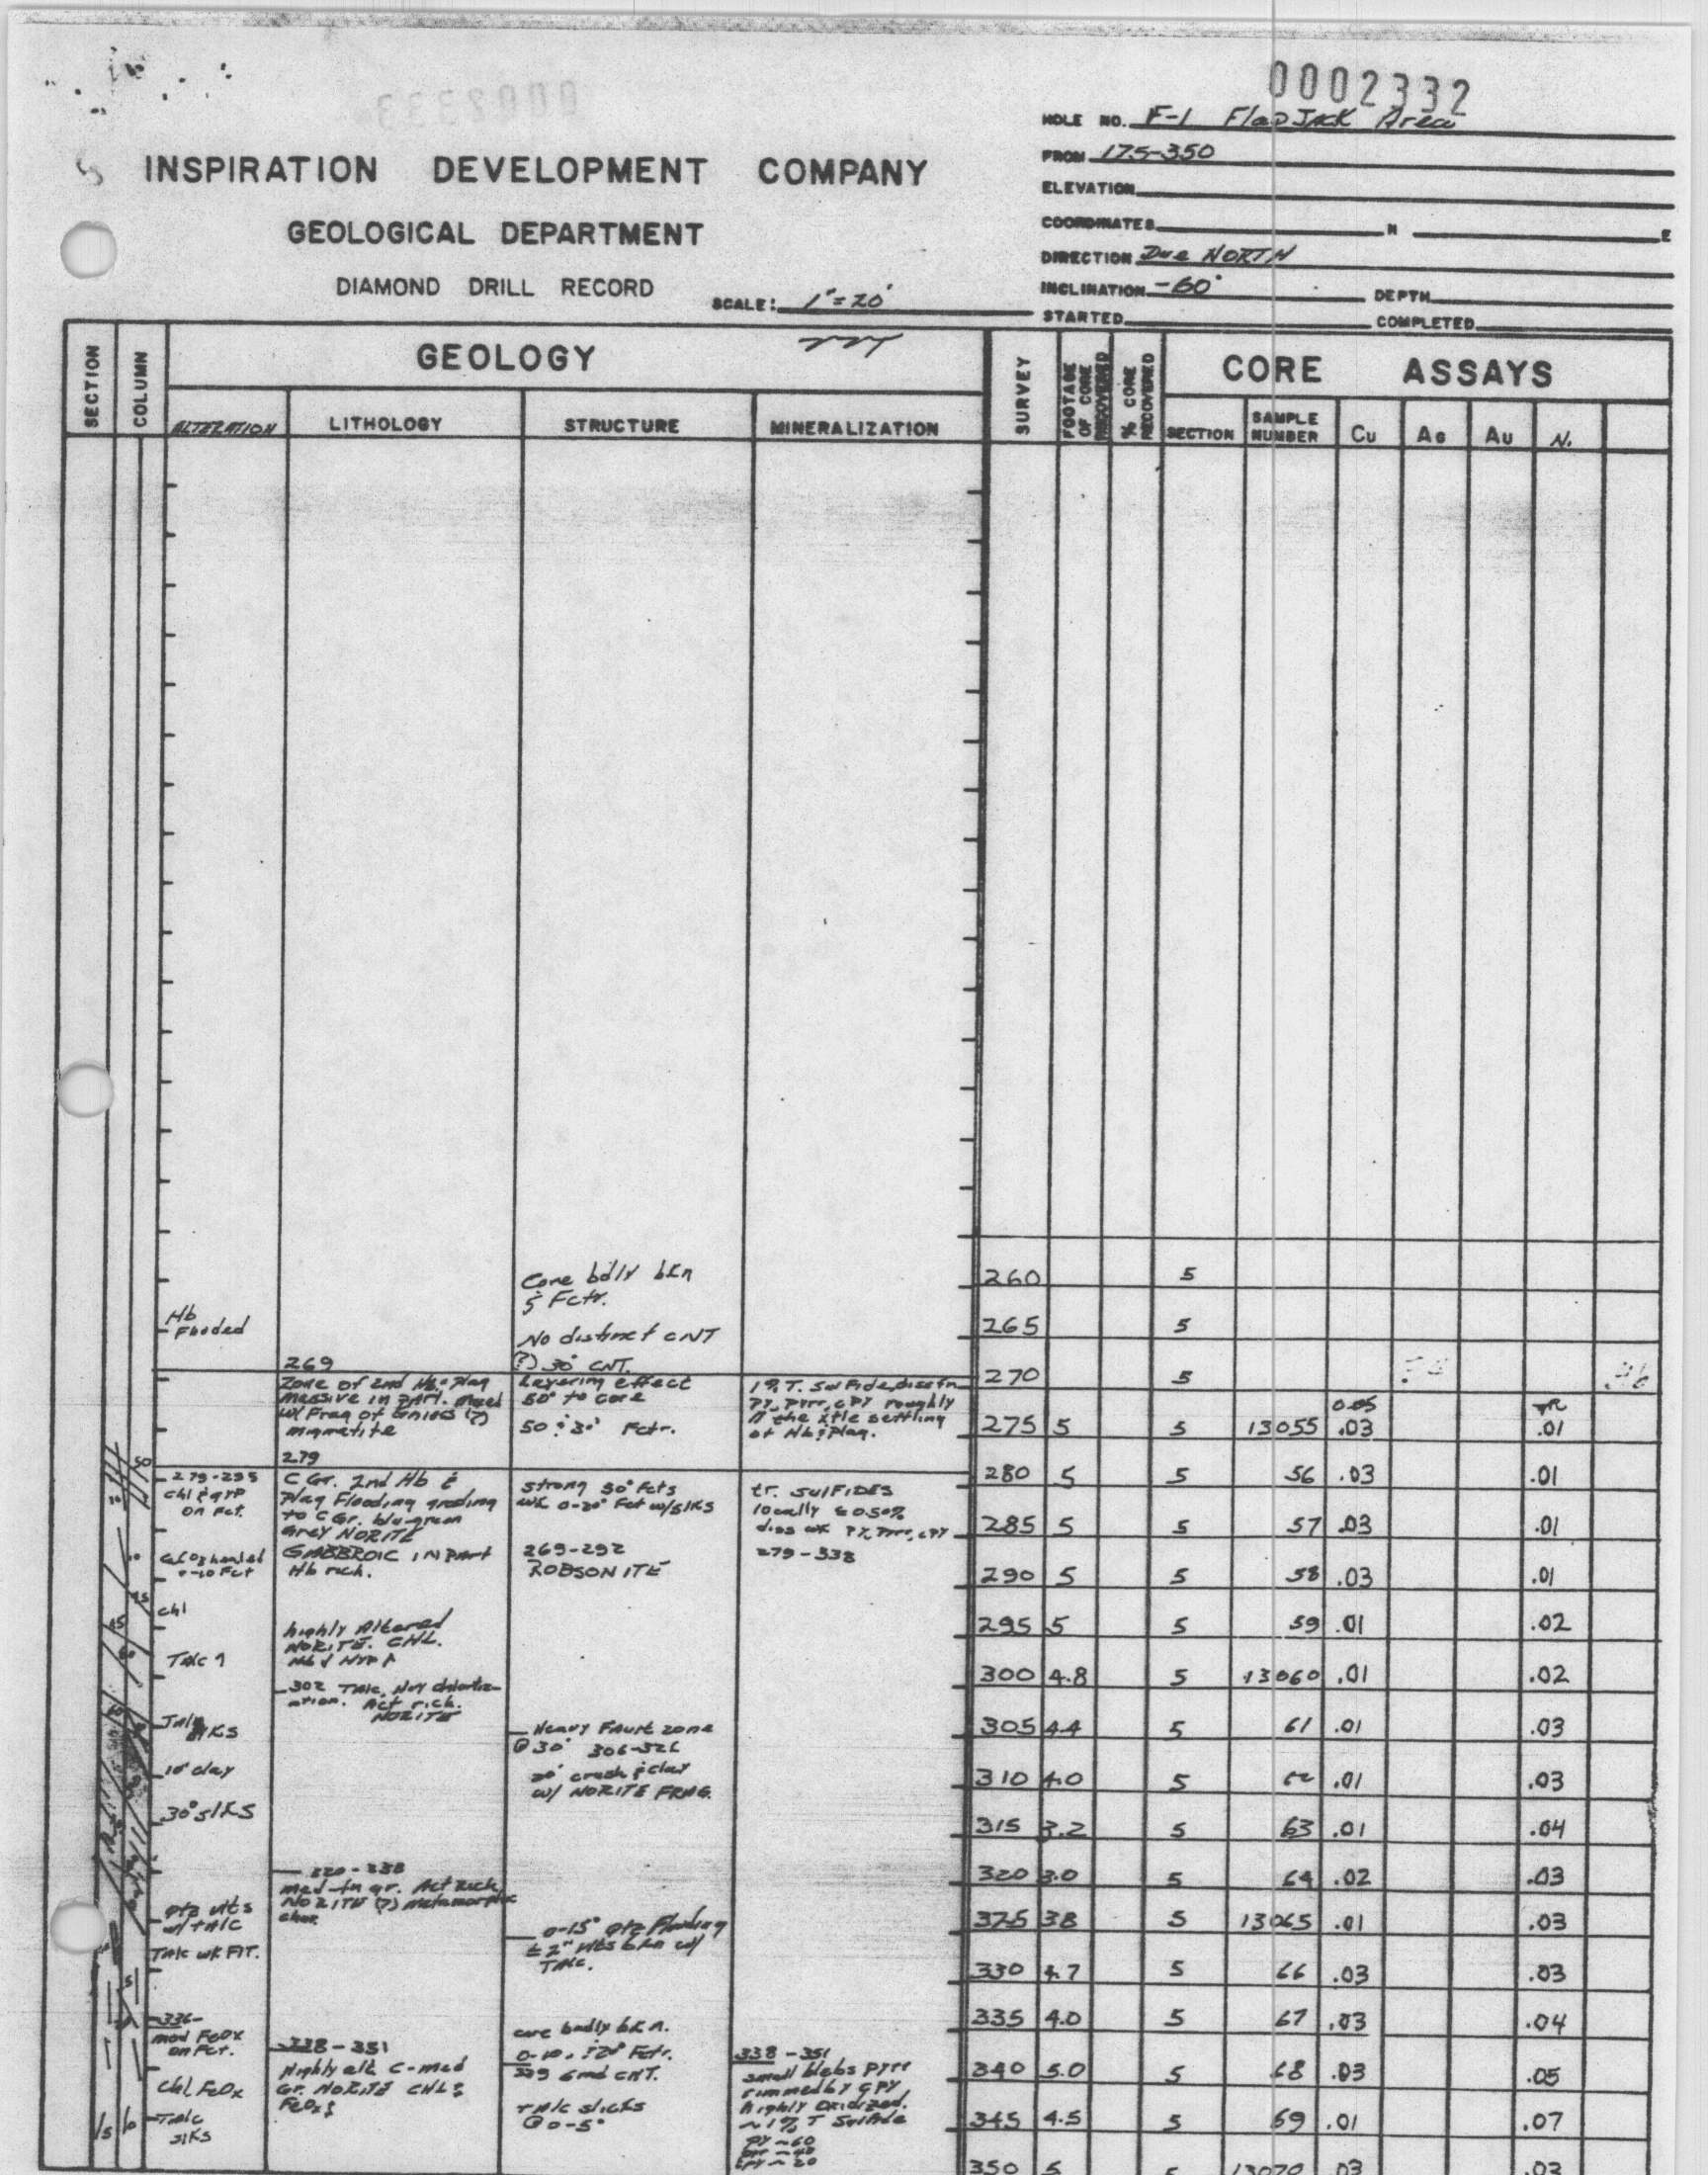 0002332
HOLE NO. F-1 FlapJACK Area
FROM 175-350
INSPIRATION DEVELOPMENT COMPANY
ELEVATION
GEOLOGICAL DEPARTMENT
COORDINATES N E
DIRECTION Due NORTH
DIAMOND DRILL RECORD
SCALE: 1"=20'
INCLINATION -60° DEPTH
STARTED COMPLETED
SECTION
COLUMN
GEOLOGY
SURVEY
FOOTAGE OF CORE RECOVERED
% CORE RECOVERED
CORE ASSAYS
ALTERATION LITHOLOGY STRUCTURE MINERALIZATION
SECTION SAMPLE NUMBER Cu Ag Au Ni
Core bdly bkn
& Fctr.
260 5
Hb
Flooded
No distinct CNT
265 5
269
(?) 30° CNT.
270 5
Zone of 2nd Hb & plag
massive in part. Mixed
w/ Frag of Gneiss (?)
magnetite
Layering effect
50° to core
50 & 30° Fctr.
1% T. Sulfide, dissem
Py, pyrr, cpy roughly
// the xtle settling
of Hb & plag.
0.05 TR
275 5 5 13055 .03 .01
279
280 5 5 56 .03 .01
279-295
Chl & gyp
on Fct.
C Gr. 2nd Hb &
plag Flooding grading
to C Gr. blu-green
Grey NORITE
GABBROIC IN part
Hb rich.
strong 30° Fcts
wk 0-20° Fct w/slks
269-292
ROBSONITE
tr. SULFIDES
locally ≤0.50%
diss wk Py, Pyrr, cpy
279-338
285 5 5 57 .03 .01
0-10 Fct
290 5 5 58 .03 .01
chl
295 5 5 59 .01 .02
highly Altered
NORITE. CHL.
Talc
300 4.8 5 13060 .01 .02
302 Talc,
Act rich.
NORITE
slks
305 4.4 5 61 .01 .03
Heavy Fault zone
@ 30° 306-326
crush & clay
w/ NORITE FRAG.
10° clay
310 4.0 5 62 .01 .03
30° slks
315 3.2 5 63 .01 .04
320-338
med-fn gr. Act Rich
NORITE (?) metamorphic
char.
320 3.0 5 64 .02 .03
qtz vlts
w/talc
325 3.8 5 13065 .01 .03
0-15° qtz Flooding
≤2" vlts bkn w/
Talc.
Talc wk FlT.
330 4.7 5 66 .03 .03
336-
mod FeOx
on Fct.
core badly bkn.
335 4.0 5 67 .03 .04
338-351
Highly alt. C-med
Gr. NORITE CHL &
FeOx
339 Grad CNT.
Talc slicks
@ 0-5°
338-351
small blebs pyrr
rimmed by cpy
highly oxidized.
~1% T Sulfide
py ~60
~20
Chl FeOx
340 5.0 5 68 .03 .05
Talc
slks
345 4.5 5 69 .01 .07
350 5 5 13070 .03 .03